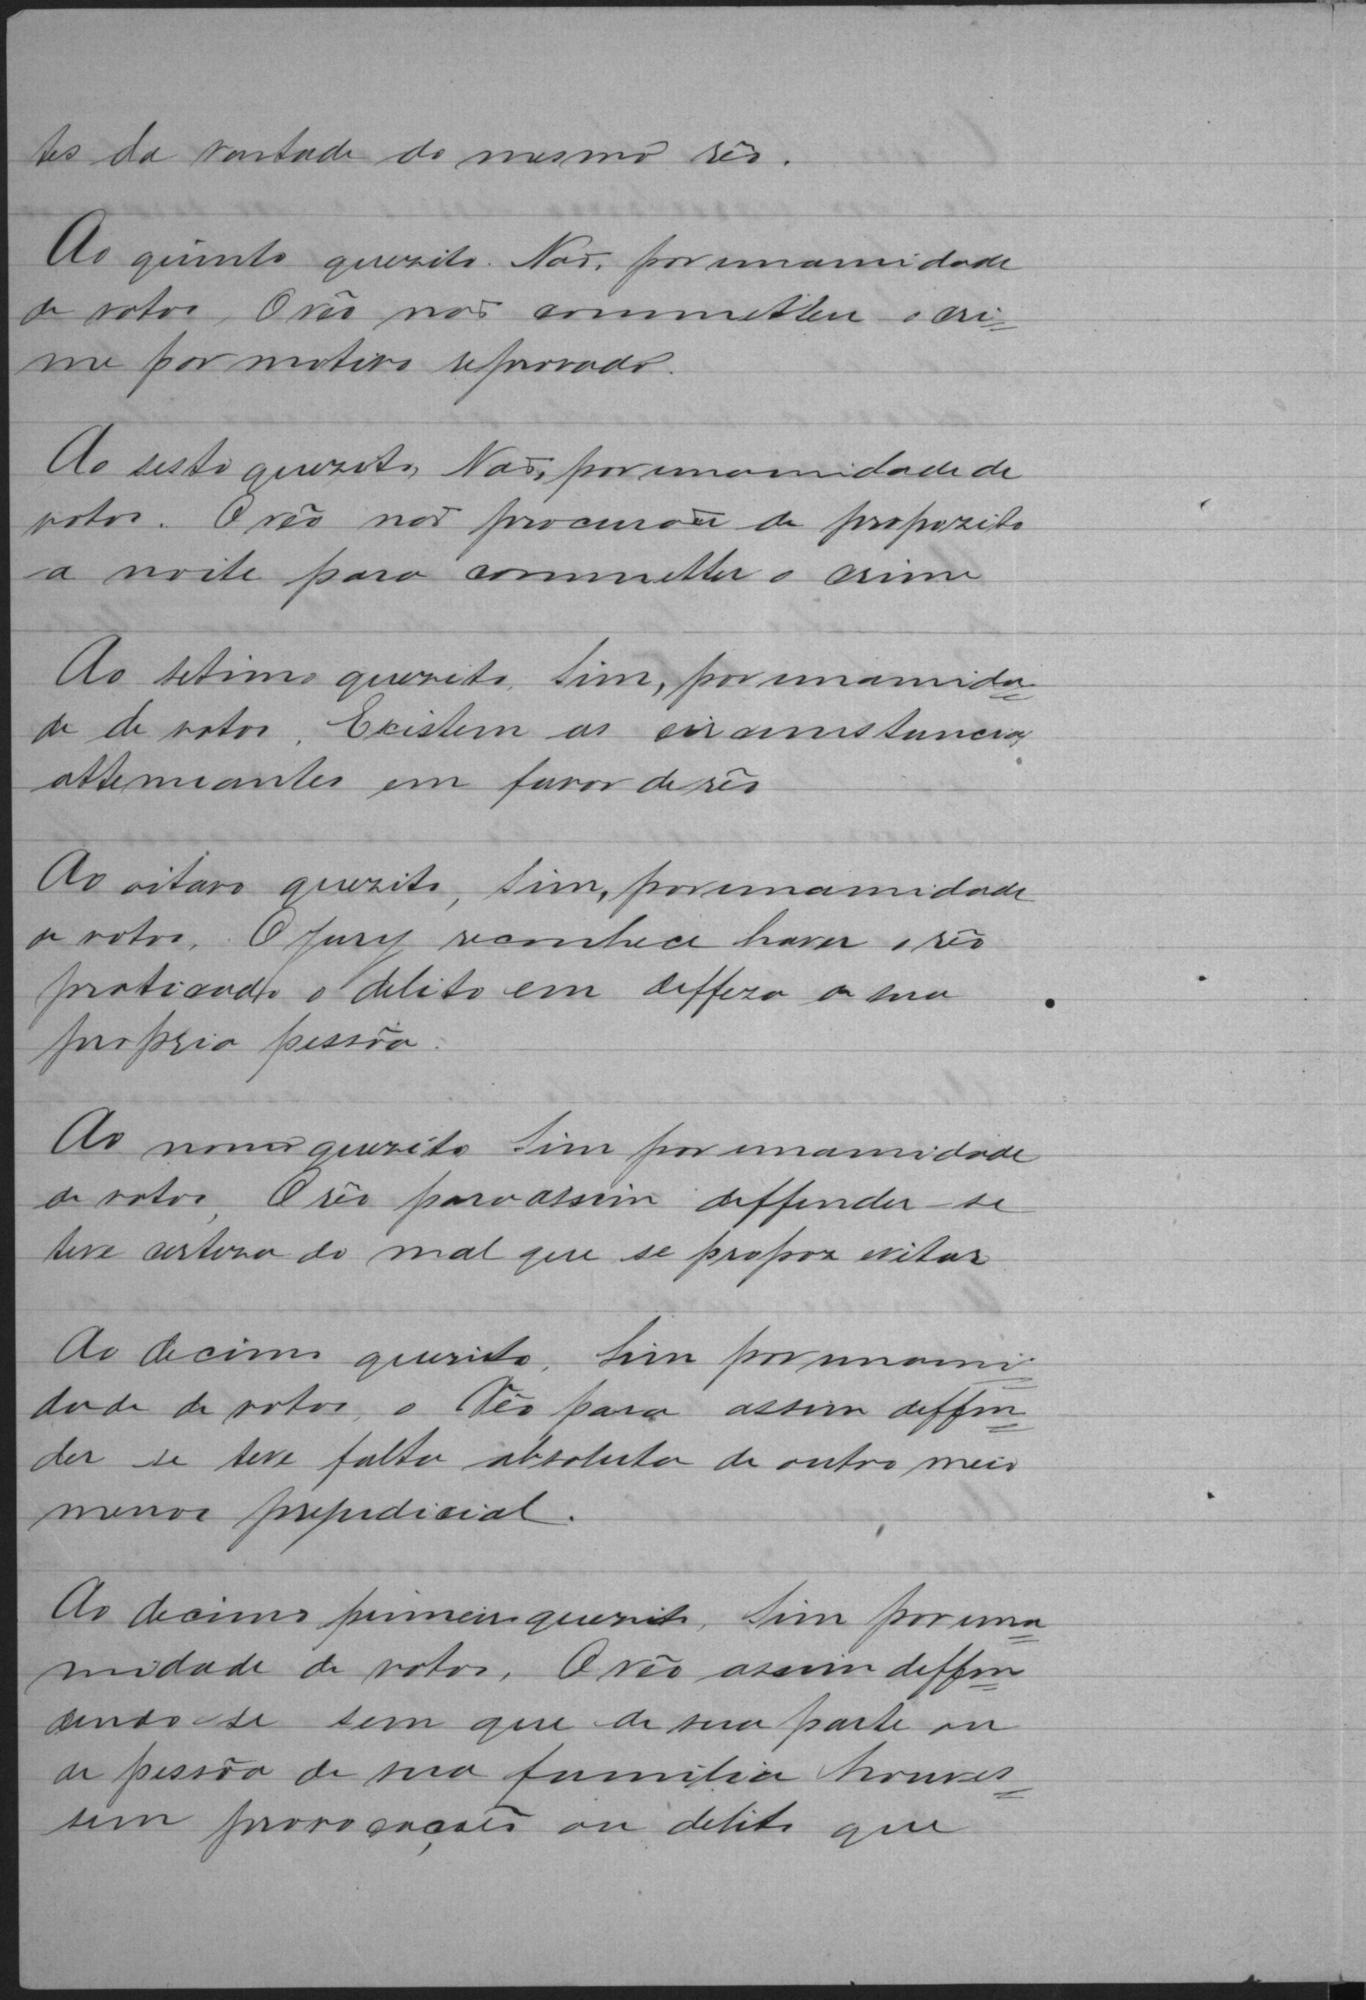 tes da vontade do mesmo réo.
Ao quinto quezito. Não, por unamidade
de votos, O réo não commetteu o cri=
me por motivo reprovado.
Ao sesto quezito, Não, por unamidade de
votos. O réo não procurou de propozito
a noite para commetter o crime
Ao setimo quezito, Sim, por unamida=
de de votos. Existem as circumstancias
attenuantes em favor de réo
Ao oitavo quezito, Sim, por unamidade
de votos. O Jury reconhece haver o réo
praticado o delito em deffeza de sua
propria pessôa.
Ao nono quezito Sim por unamidade
de votos, O réo para assim deffender-se
teve certeza do mal que se propoz evitar
Ao decimo quezito, Sim por unami=
dade de votos, o Réo para assim deffen=
der se teve falta absoluta de outro meio
menos prejudicial.
Ao decimo primeiro quezito, Sim por una=
midade de votos, O réo assim deffen=
dendo-se sem que de sua parte ou
de pessôa de sua familia houves=
sem provocações ou delito que